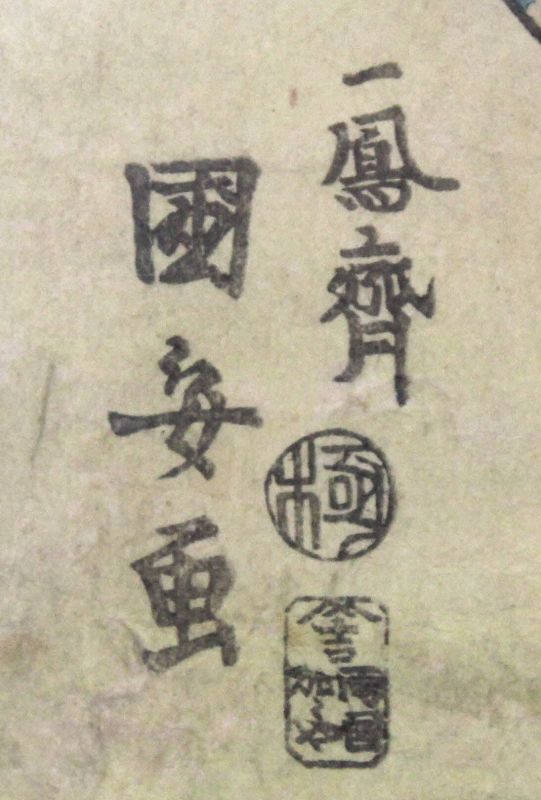 一鳳齋
國安画
極